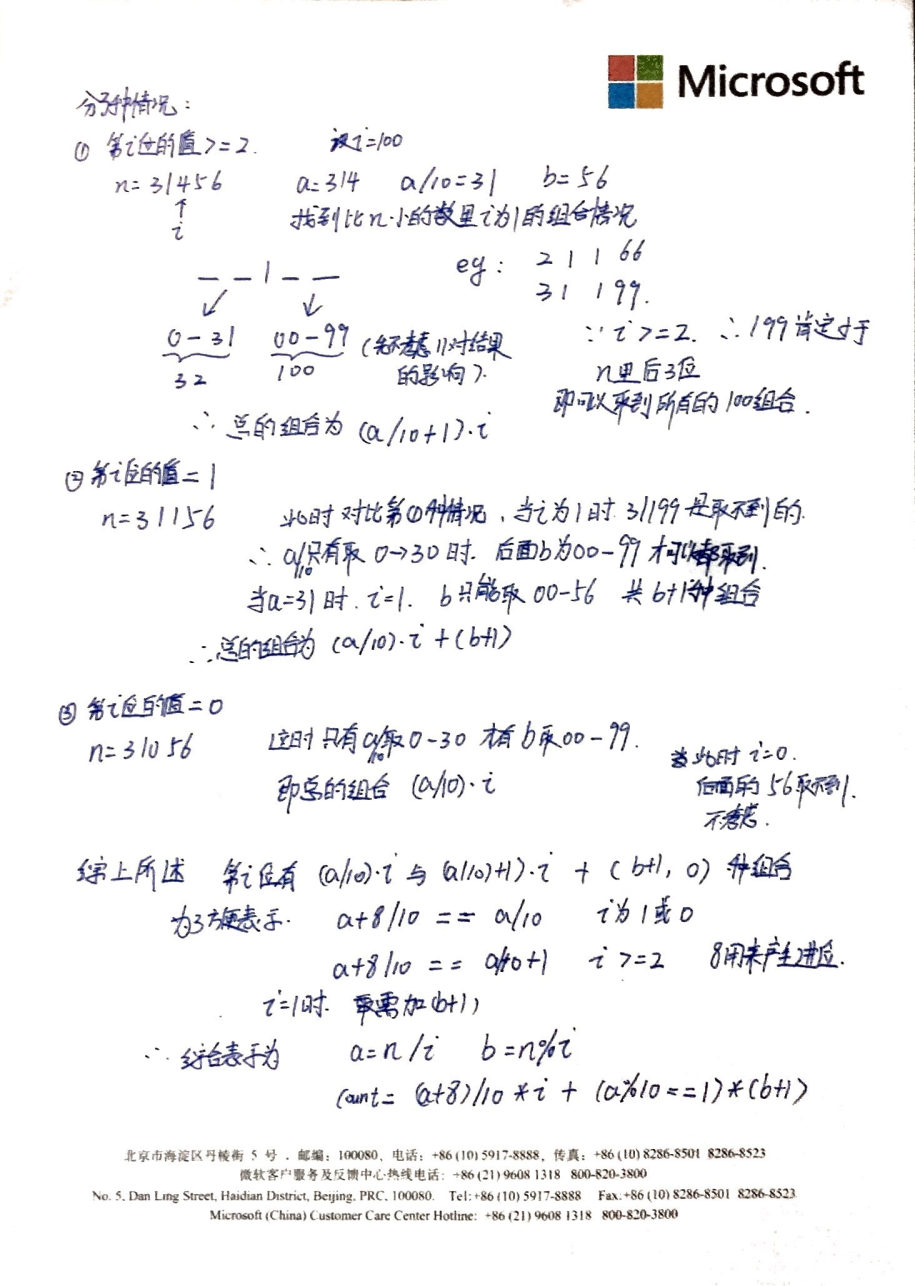 Microsoft
分3种情况：
① 第i位的值>=2. 设i=100
n=31456 a=314 a/10=31 b=56
↑
i
找到比n小的数里i为1的组合情况
_ _ 1 _ _ eg: 21 1 66
31 1 99.
0-31 00-99 (先不考虑11对结果
32 100 的影响).
∵ i>=2. ∴ 199肯定小于
n里后3位
即可以取到所有的100组合.
∴ 总的组合为 (a/10+1)·i
② 第i位的值=1
n=31156 此时对比第①种情况，当i为1时 31199是取不到的.
∴ a/10只有取 0→30时. 后面b为00-99才可以都取到.
当a=31时. i=1. b只能取 00-56 共 b+1种组合
∴ 总的组合为 (a/10)·i+(b+1)
③ 第i位的值=0
n=31056 这时只有a/10取0-30 才有b取00-99.
即总的组合 (a/10)·i
此时 i=0.
后面的56取不到.
不考虑.
综上所述 第i位有 (a/10)·i 与 (a/10)+1)·i + (b+1, 0) 种组合
为了方便表示. a+8/10 == a/10 i为1或0
a+8/10 == a/10+1 i>=2 8用来产生进位.
i=1时. 需加(b+1)
∴ 综合表示为 a=n/i b=n%i
Count= (a+8)/10*i + (a%10==1)*(b+1)
北京市海淀区丹棱街 5 号 . 邮编：100080, 电话：+86 (10) 5917-8888, 传真：+86 (10) 8286-8501 8286-8523
微软客户服务及反馈中心热线电话：+86 (21) 9608 1318 800-820-3800
No. 5, Dan Ling Street, Haidian District, Beijing, PRC, 100080. Tel:+86 (10) 5917-8888 Fax:+86 (10) 8286-8501 8286-8523
Microsoft (China) Customer Care Center Hotline: +86 (21) 9608 1318 800-820-3800